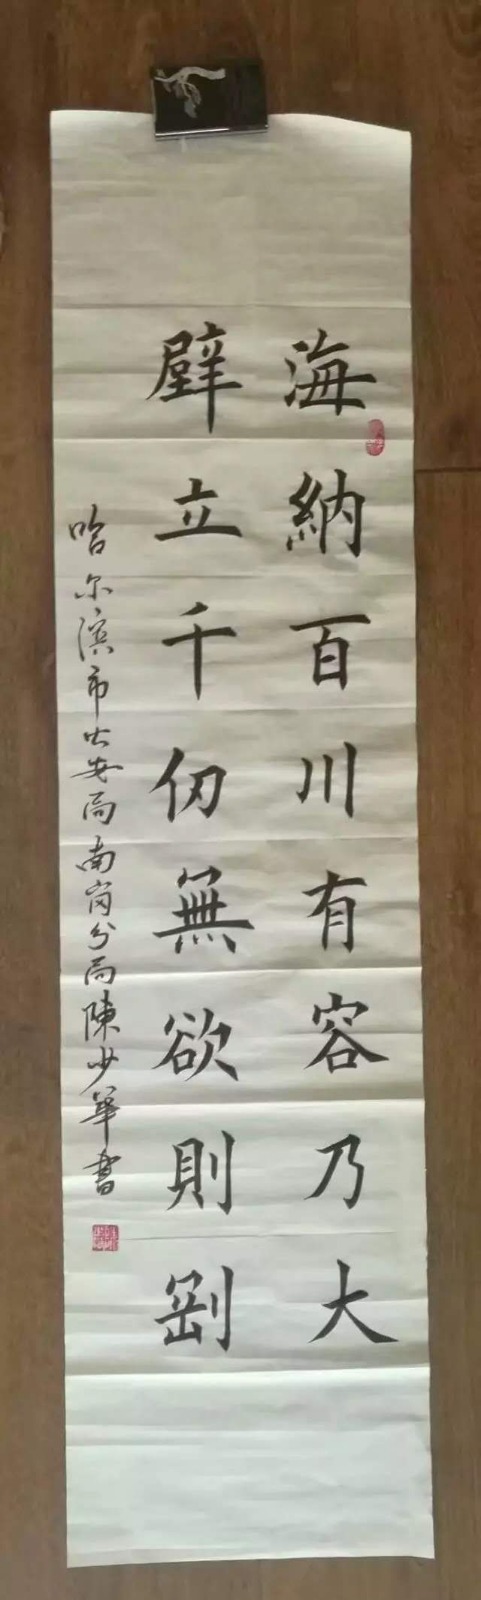 海納百川有容乃大
壁立千仞無欲則剛
哈尔滨市公安局南岗分局陳少華書